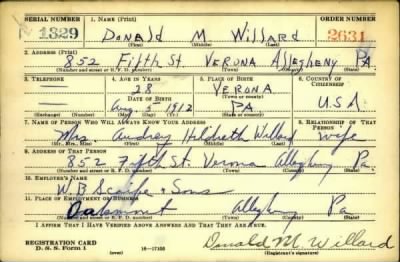 SERIAL NUMBER 1. NAME (Print) ORDER NUMBER
1329 Donald M Willard 2631
(First) (Middle) (Last)
2. ADDRESS (Print)
852 Fifth St. VERONA Allegheny PA.
(Number and street or R. F. D. number) (Town) (County) (State)
3. TELEPHONE 4. AGE IN YEARS 5. PLACE OF BIRTH 6. COUNTRY OF CITIZENSHIP
28 VERONA
DATE OF BIRTH (Town or county)
Aug. 5 1912 PA U.S.A.
(Exchange) (Number) (Mo.) (Day) (Yr.) (State or country)
7. NAME OF PERSON WHO WILL ALWAYS KNOW YOUR ADDRESS 8. RELATIONSHIP OF THAT PERSON
Mrs Audrey Hildreth Willard wife
(Mr., Mrs., Miss) (First) (Middle) (Last)
9. ADDRESS OF THAT PERSON
852 Fifth St. Verona Allegheny Pa.
(Number and street or R. F. D. number) (Town) (County) (State)
10. EMPLOYER'S NAME
W. B. Scaife & Sons
11. PLACE OF EMPLOYMENT OR BUSINESS
Oakmont Allegheny Pa
(Number and street or R. F. D. number) (Town) (County) (State)
I AFFIRM THAT I HAVE VERIFIED ABOVE ANSWERS AND THAT THEY ARE TRUE.
REGISTRATION CARD
D. S. S. Form 1 16—17105 Donald M. Willard
(Registrant's signature)